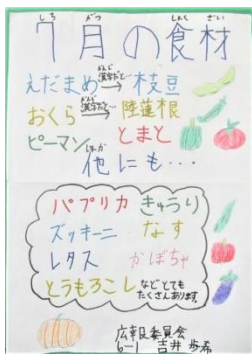 7月の食材
えだまめ 漢字だと… 枝豆
おくら 漢字だと… 陸蓮根
ピーマン とまと
他にも・・・
パプリカ きゅうり
ズッキーニ なす
レタス かぼちゃ
とうもろこし などとても
たくさんあります。
広報委員会
6-1 吉井